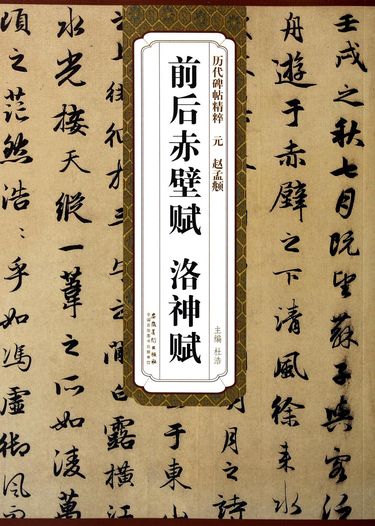 壬戌之秋七月既望蘇子與客
舟遊于赤壁之下清風徐来水
月之詩
于東山
之間白露橫江
水光接天縱一葦之所如凌萬
頃之茫然浩〻乎如馮虛御風
历代碑帖精粹 元 赵孟頫
前后赤壁赋 洛神赋
主编 杜浩
安徽美术出版社
全国百佳图书出版单位